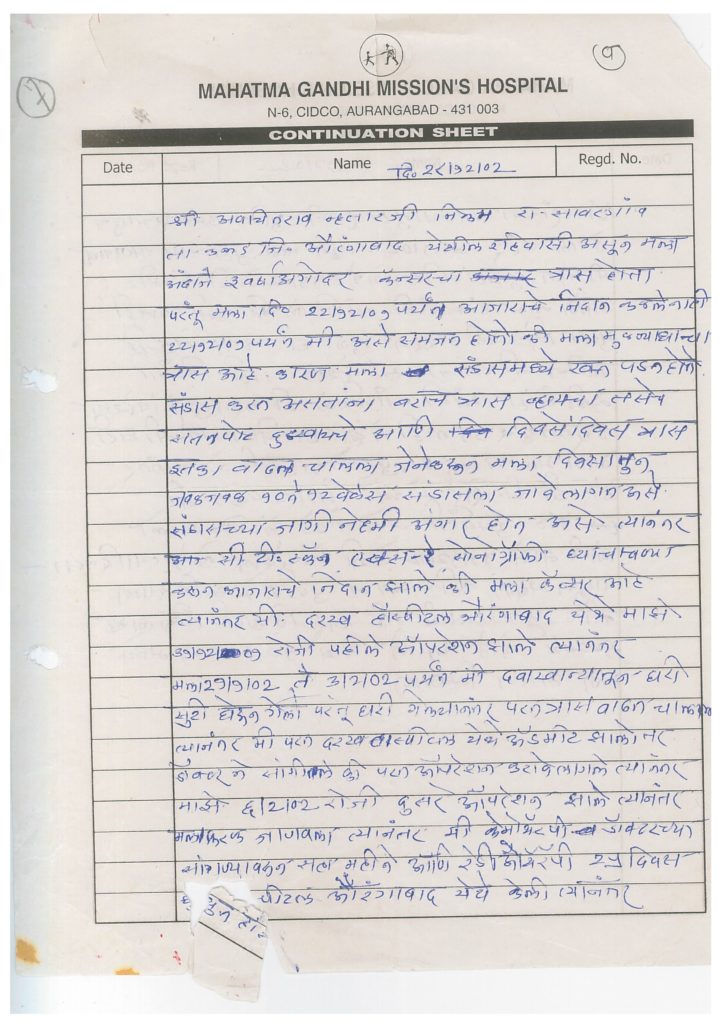 ७
९
MAHATMA GANDHI MISSION'S HOSPITAL
N-6, CIDCO, AURANGABAD - 431 003
CONTINUATION SHEET
Date Name Regd. No.
दि०
श्री अवचितराव निकम रा. सावरगांव
ता कन्नड जि. औरंगाबाद येथील रहिवासी असून मला
अंदाजे कॅन्सरचा त्रास होता
परंतू मला दि० २२/१२/०१ पर्यंत आजाराचे निदान कळलेनाही
२२/१२/०१ पर्यंत मी असे समजत होतो की मला मुळव्याधीचा
त्रास आहे कारण मला संडासमध्ये रक्त पडत होते
संडास करत असतांना बराच त्रास व्हायचा तसेच
पोट दुखायचे आणि दिवसेंदिवस त्रास
इतका वाढत चालला जेनेकरून मला दिवसातून
१० ते १२ वेळेस संडासला जावे लागत असे
संडासच्या जागी नेहमी अंगार होत असे. त्यानंतर
सी टी. स्कॅन एक्स-रे सोनोग्राफी
करून आजाराचे निदान झाले की मला कॅन्सर आहे
त्यानंतर मी. दरख हॉस्पीटल औरंगाबाद येथे माझे
रोजी पहीले ऑपरेशन झाले त्यानंतर
मला ते ३/२/०२ पर्यंत मी दवाखान्यातून घरी
सुटी होऊन गेलो परंतू घरी गेल्यानंतर परत त्रास वाढत
त्यानंतर मी परत दरख हास्पिटल येथे अॅडमीट झालो तर
डॉक्टर ने सांगीतले की परत ऑपरेशन करावे लागले त्यानंतर
माझे ६/२/०२ रोजी दुसरे ऑपरेशन झाले त्यानंतर
मला फरक जाणवला त्यानंतर मी केमोथॅरपी डॉक्टरच्या
सांगण्यावरून सहा महीने आणि रेडीओथॅरपी दिवस
औरंगाबाद येथे केली त्यानंतर